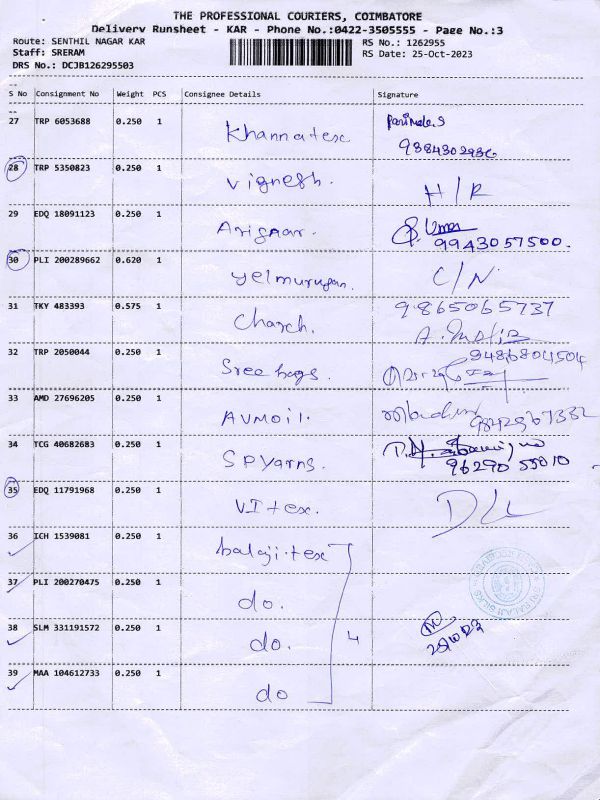 THE PROFESSIONAL COURIERS, COIMBATORE
Delivery Runsheet - KAR - Phone No.:0422-3505555 - Page No.:3
Route: SENTHIL NAGAR KAR RS No.: 1262955
Staff: SRERAM RS Date: 25-Oct-2023
DRS No.: DCJB126295503
S No Consignment No Weight PCS Consignee Details Signature
27 TRP 6053688 0.250 1 Khannatex
28 TRP 5350823 0.250 1 Vignesh. H/R
29 EDQ 18091123 0.250 1
9943057500.
30 PLI 200289662 0.620 1 yelmurugan. C/N
31 TKY 483393 0.575 1 Charch. 9865065737
32 TRP 2050044 0.250 1 Sree bags. 9486804504
33 AMD 27696205 0.250 1 AVMOil.
34 TCG 40682683 0.250 1 SPYarns.
9629055010
35 EDQ 11791968 0.250 1 VItex. D/L
36 ICH 1539081 0.250 1 balaji.tex
37 PLI 200270475 0.250 1 do.
38 SLM 331191572 0.250 1 do. 4
39 MAA 104612733 0.250 1 do